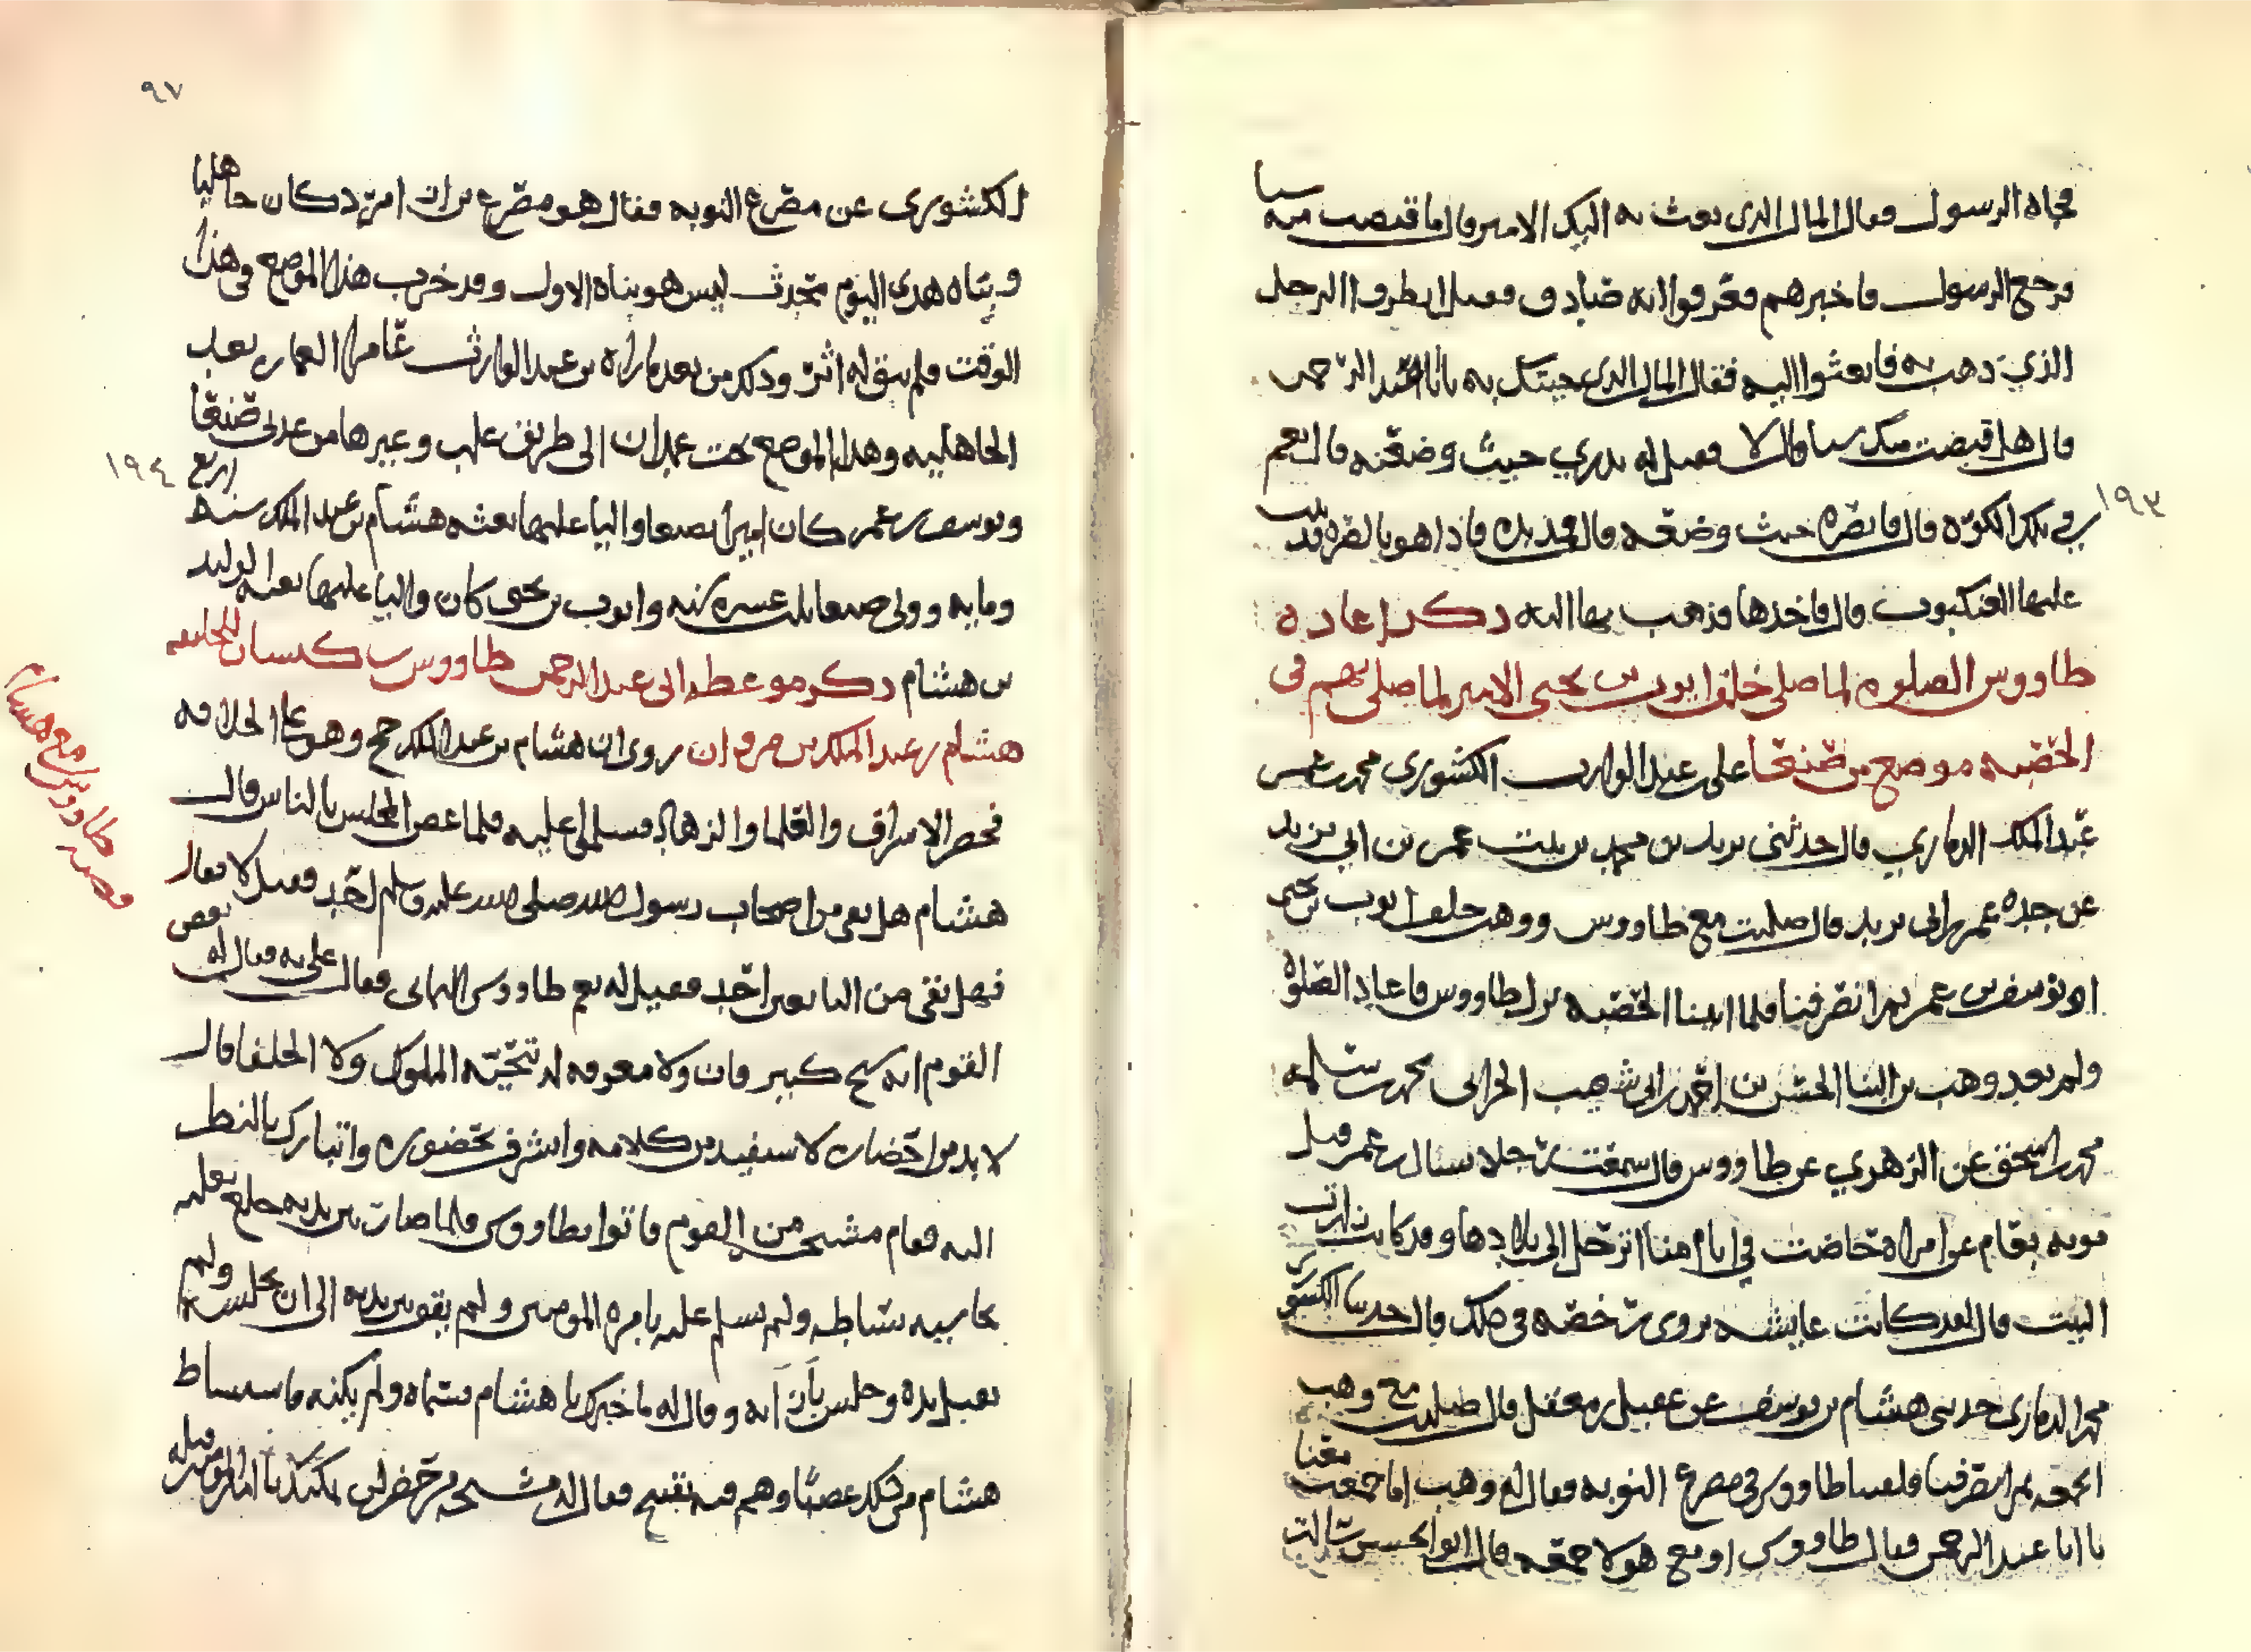 فجاه الرسول فقال المال الذي بعث به اليك الامير قال ما قبضت منه شيا
فرجع الرسول فاخبرهم فعرفوا انه صادق فقيل انظروا الرجل
الذي ذهب به فابعثوا اليه فقال المال الذي جيتك به يا ابا عبد الرحمن
قال هل قبضت منك شيا قال لا فقيل له تدري حيث وضعته قال نعم
في تلك الكوة قال فابصره حيث وضعته قال فمد يده فاذا هو بالصرة قد بنت
١٩٣
عليها العنكبوت قال فاخذها فذهب بها اليه ذكر اعاده
طاووس الصلوه لما صلى خلف ايوب بن يحيى الامير لما صلى بهم في
الحصبه موضع من صنعا علي بن عبد الوارث الكشوري محمد بن عمر بن
عبد الملك الذماري قال حدثني يزيد بن محمد بن بنت عمر بن ابي يزيد
عن جده عمر بن ابي يزيد قال صليت مع طاووس ووهب خلف ايوب بن يحيى
او يوسف بن عمر ثم انصرفنا فلما اتينا الحصبه نزل طاووس فاعاد الصلوة
ولم يعد وهب بن الحسن بن احمد بن ابي شعيب الحراني محمد بن سلمه
محمد بن اسحق عن الزهري عن طاووس قال سمعت رجلا سئال بن عمر قبل
موته بعام عن امراة حاضت في ايام منا اترحل الى بلادها وقد كانت زارت
البيت قال لقد كانت عايشه تروي رخصه في ذلك قال حدثنا الكشوري
محمد الذماري حدثني هشام بن يوسف عن عقيل بن معقل قال صليت مع وهب
الجمعه ثم انصرفنا فلقينا طاووس في مصرع النوبه فقال له وهب اما جمعت معنا
يا ابا عبد الرحمن فقال طاووس او مع هولا جمعه قال ابو الحسن سالت
٩٧
الكشوري عن مصرع النوبه فقال هو مصرع امرد كان جاهليا
وبناه هذى اليوم محدث ليس هو بناه الاول وقد خرب هذا الموضع في هذا
الوقت فلم يبق له اثر وذلك من بعد بن عبد الوارث
الجاهليه وهذا الموضع تحت عمدان الى طريق علب وغيرها من عدني صنعا
ويوسف بن عمر كان اميرا بصنعا واليا عليها بعثه هشام بن عبد الملك سنه اربع
١٩٤
ومايه وولي صنعا ثلث عشره سنه وايوب بن يحيى كان واليا عليها بعثه الوليد
بن هشام ذكر موعظه ابي عبد الرحمن طاووس بن كيسان للخليفه
هشام بن عبد الملك بن مروان روى ان هشام بن عبد الملك حج وهو على الخلافه
فحضر الاشراف والعلما والزهاد فسلم الي عليه فلما غص المجلس بالناس قال
هشام هل بقي من اصحاب رسول الله صلى الله عليه وسلم احد فقيل لا فقال
فهل بقي من التابعين احد فقيل له نعم طاووس اليماني فقال علي به فقال له بعض
القوم انه شيخ كبير فان ولا معرفه له بتحيه الملوك ولا الخلفا قال
لا بد من احضاره لاستفيد من كلامه واتشرف بحضوره واتبارك بالنظر
اليه فقام مشيخه من القوم فاتوا بطاووس فلما صار بين يديه خلع نعليه
بحاشيه بساطه ولم يسلم عليه بامره المومنين ولم يقف بين يديه الى ان يجلسه ولم
يقبل يده وجلس بازايه وقال له ما خبرك يا هشام فسماه ولم يكنه فاستشاط
هشام من ذلك غضبا وهم فيه بقبيح فقال له مشيخه من حضر لن يمكنك يا امير المومنين قتله
قصه طاووس مع هشام